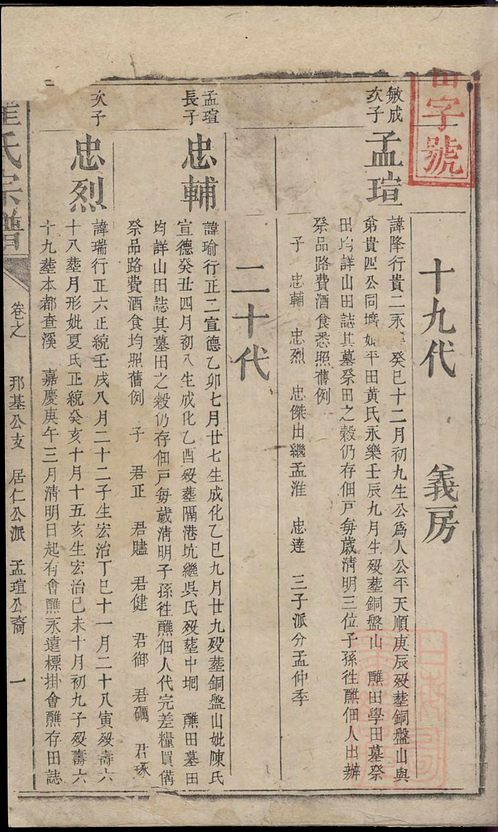 字號
十九代 義房
敏成
次子
孟瑄
諱隆行貴二永 癸巳十二月初九生公爲人公平天順庚辰歿塟銅盤山與
弟貴四公同 平田黃氏永樂壬辰九月生歿塟銅盤山 醮田學田墓祭
田均詳山田誌其墓祭田之穀仍存佃戸每歲清明三位子孫徃醮佃人出辦
祭品路費酒食悉照舊例
子 忠輔 忠烈 忠傑出繼孟淮 忠達 三子派分孟仲季
二十代
孟瑄
長子
忠輔
諱瑜行正二宣德乙卯七月廿七生成化乙巳九月廿九歿塟銅盤山妣陳氏
宣德癸丑四月初八生成化乙酉歿塟隔港坑繼吳氏歿塟中垌 醮田墓田
均詳山田誌其墓田之穀仍存佃戸每歲清明子孫徃醮佃人代完差糧買備
祭品路費酒食均照舊例 子 君正 君賍 君健 君御 君礪 君琢
次子
忠烈
諱瑞行正六正統壬戌八月二十二子生宏治丁巳十一月二十八寅歿壽六
十八塟月形妣夏氏正統癸亥十月十五亥生宏治己未十月初九子歿壽六
十九塟本都查溪 嘉慶庚午三月清明日起有會醮永遠標掛會醮存田誌
氏宗譜
卷之
邢基公支 居仁公派 孟瑄公裔
一